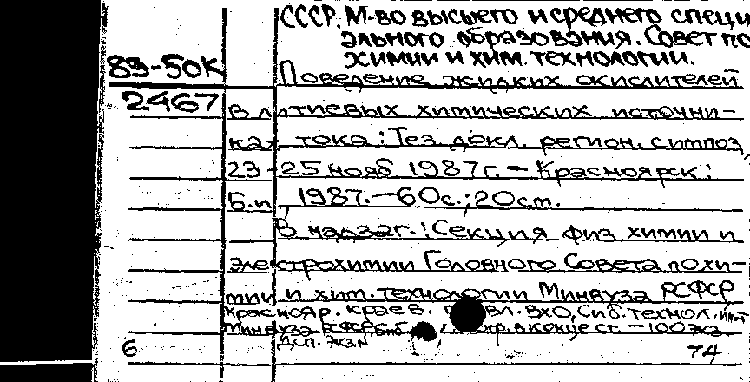 СССР. М-во высшего и среднего специ
ального образования. Совет по
химии и хим. технологии.
89-50К
Поведение жидких окислителей
2467
в литиевых химических источни-
ках тока: Тез. докл. регион. симпоз,
23-25 нояб 1987г. - Красноярск:
Б.и, 1987. - 60с.; 20см.
В надзаг.: Секция физ химии и
электрохимии Головного Совета по хи-
мии и хим. технологии Минвуза РСФСР
Краснояр. краев. ВХО, Сиб. технол. ин-т
Минвуза РСФСР в конце ст. - 100 экз.
6
74